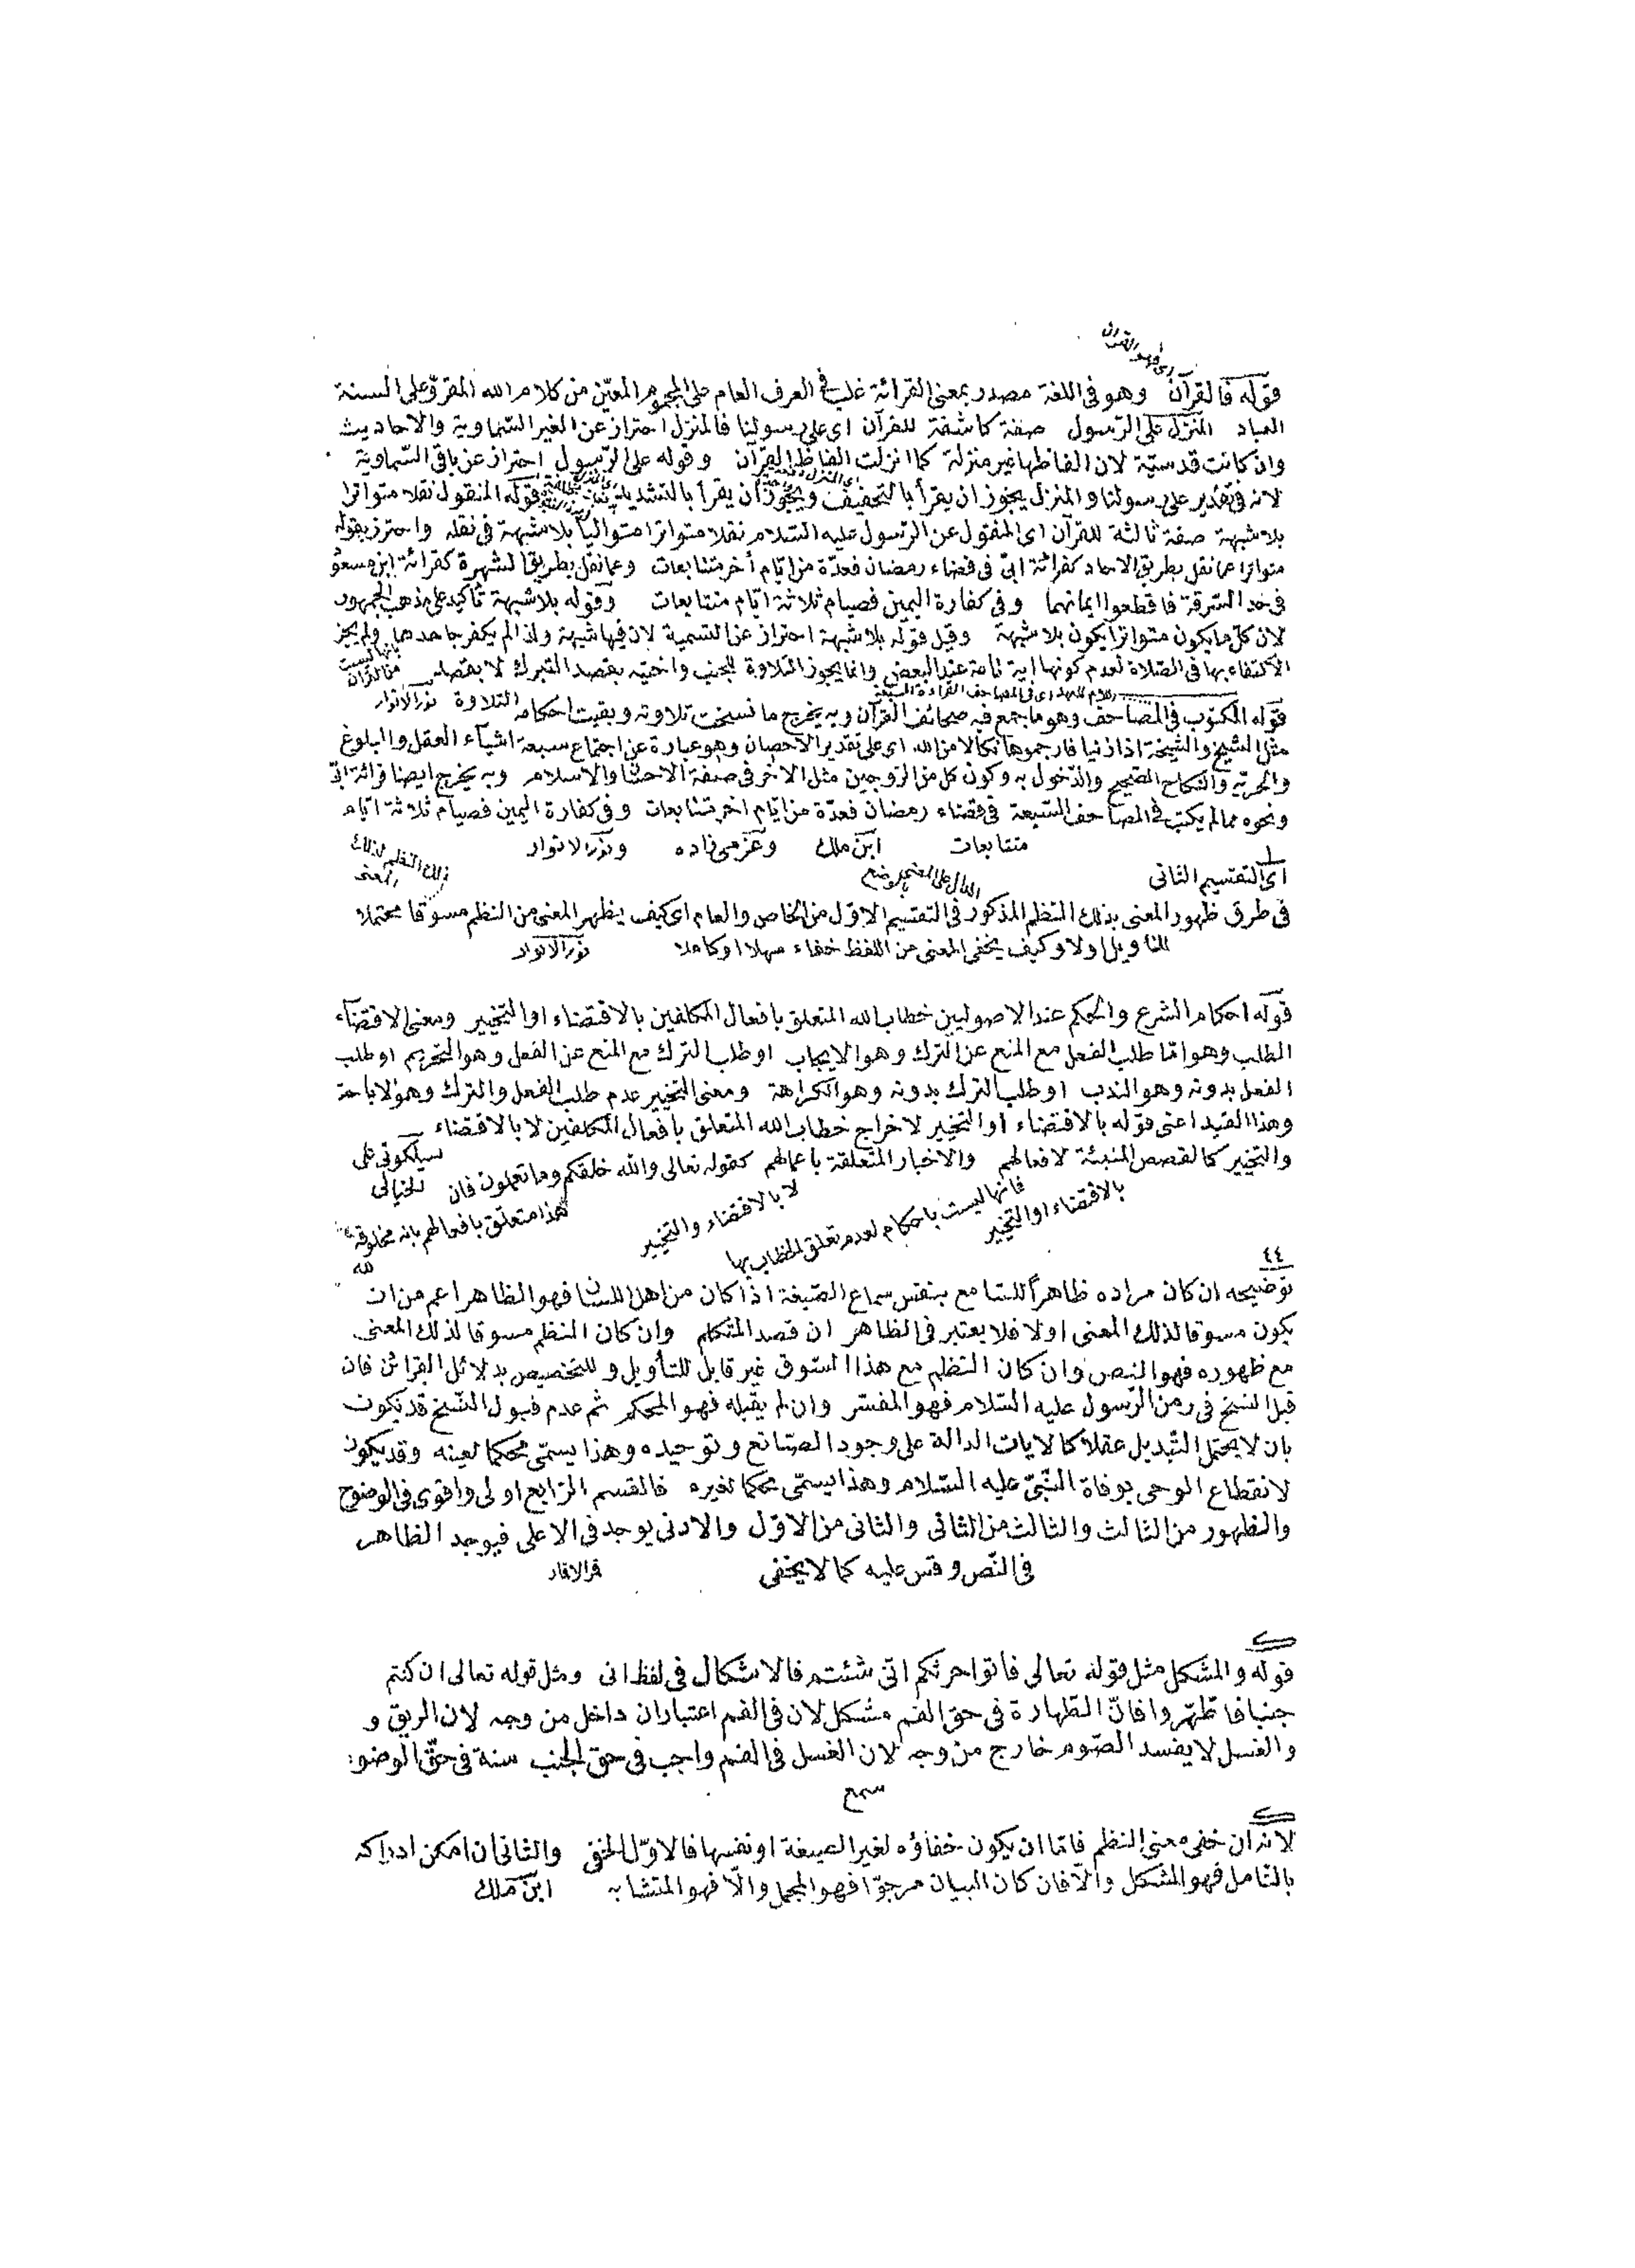 اى وهو القران
قوله فالقرآن وهو فى اللغة مصدر بمعنى القرائة غلب فى العرف العام على المجموع المعيّن من كلام الله المقروّ على السنة
العباد المنزّل على الرّسول صفة كاشفة للقرآن اى على رسولنا فالمنزل احتراز عن الغير السّماوية والاحاديث
وان كانت قدسيّة لان الفاظها غير منزلة كما انزلت الفاظ القرآن وقوله على الرّسول احتراز عن باقى السّماوية
لانه فى تقدير على رسولنا و المنزل يجوز ان يقرأ بالتخفيف ويجوز ان يقرأ بالتشديد قوله المنقول نقلا متواترا
بلا شبهة صفة ثالثة للقرآن اى المنقول عن الرّسول عليه السّلام نقلا متواترا متواليا بلا شبهة فى نقله واحترز بقوله
متواترا عما نقل بطريق الاحاد كقرائة ابىّ فى قضاء رمضان فعدّة من ايّام أخر متتابعات وعما نقل بطريق الشهرة كقرائة ابن مسعود
فى حد السّرقة فاقطعوا ايمانهما وفى كفارة اليمين فصيام ثلاثة ايّام متتابعات وقوله بلا شبهة تأكيد على مذهب الجمهور
لان كلّ ما يكون متواترا يكون بلا شبهة وقيل قوله بلا شبهة احتراز عن التسمية لان فيها شبهة ولذا لم يكفر جاحدها ولم يجز
الاكتفاء بها فى الصّلاة لعدم كونها اية تامة عند البعض وانما يجوز التلاوة للجنب واختيه بقصد التبرك لا بقصد
بانها ليست من القران
التلاوة نور الانوار
قوله المكتوب فى المصاحف وهو ما جمع فيه صحائف القرآن وبه يخرج ما نسخت تلاوته وبقيت احكامه
مثل الشيخ والشيخة اذا زنيا فارجموها نكالا من الله اى على تقدير الاحصان وهو عبارة عن اجتماع سبعة اشيآء العقل والبلوغ
والحريّة والنكاح الصّحيح والدّخول به وكون كل من الزوجين مثل الاخر فى صفة الاحصان والاسلام وبه يخرج ايضا قرائة ابىّ
ونحوه مما لم يكتب فى المصاحف السّبعة فى قضاء رمضان فعدّة من ايّام اخر متتابعات وفى كفارة اليمين فصيام ثلاثة ايّام
متتابعات ابن ملك وعزمى زاده ونور الانوار
اى التقسيم الثانى
الدال على المعنى بالوضع
ذلك النظم لذلك المعنى
فى طرق ظهور المعنى بذلك النّظم المذكور فى التقسيم الاوّل من الخاص والعام اى كيف يظهر المعنى من النظم مسوقا محتملا
للتأويل اولا وكيف يخفى المعنى من اللفظ خفاء سهلا او كاملا نور الانوار
قوله احكام الشرع والحكم عند الاصوليين خطاب الله المتعلق بافعال المكلفين بالاقتضاء او التخيير ومعنى الاقتضآء
الطلب وهو امّا طلب الفعل مع المنع عن الترك وهو الايجاب او طلب الترك مع المنع عن الفعل وهو التحريم او طلب
الفعل بدونه وهو الندب او طلب الترك بدونه وهو الكراهة ومعنى التخيير عدم طلب الفعل والترك وهو الاباحة
وهذا القيد اعنى قوله بالاقتضاء او التخيير لاخراج خطاب الله المتعلق بافعال المكلفين لا بالاقتضاء
والتخيير كالقصص المنبئة لافعالهم والاخبار المتعلقة باعمالهم كقوله تعالى والله خلقكم وما تعملون فان
هذا متعلّق بافعالهم بانه مخلوقة لله
لا بالاقتضاء والتخيير
فانها ليست باحكام لعدم تعلق الخطاب بها
بالاقتضاء او التخيير
سيلكوتى على الخيالى
٤٤
توضيحه ان كان مراده ظاهراً للسّامع بنفس سماع الصّيغة اذا كان من اهل اللسان فهو الظاهر اعم من ان
يكون مسوقا لذلك المعنى اولا فلا يعتبر فى الظاهر ان قصد المتكلم وان كان النظم مسوقا لذلك المعنى
مع ظهوره فهو النص وان كان النّظم مع هذا السّوق غير قابل للتأويل و للتخصيص بدلائل القرائن فان
قبل النسخ فى زمن الرّسول عليه السّلام فهو المفسّر وان لم يقبله فهو المحكم ثم عدم قبول النّسخ قد يكون
بان لا يحتمل التّبديل عقلا كالايات الدالة على وجود الصّانع وتوحيده وهذا يسمّى محكما لعينه وقد يكون
لانقطاع الوحى بوفاة النّبىّ عليه السّلام وهذا يسمّى محكما لغيره فالقسم الرّابع اولى واقوى فى الوضوح
والظهور من الثالث والثالث من الثانى والثانى من الاوّل والادنى يوجد فى الاعلى فيوجد الظاهر
فى النّص وقس عليه كما لا يخفى قمر الاقمار
قوله والمشكل مثل قوله تعالى فاتوا حرثكم انّى شئتم فالاشكال فى لفظ انى ومثل قوله تعالى ان كنتم
جنبا فاطّهّروا فانّ الطّهارة فى حق الفم مشكل لان فى الفم اعتباران داخل من وجه لان الريق و
والغسل لا يفسد الصّوم خارج من وجه لان الغسل فى الفم واجب فى حق الجنب سنة فى حقّ الوضوء
سمع
لانه ان خفى معنى النظم فامّا ان يكون خفاؤه لغير الصيغة او نفسها فالاوّل الخفى والثانى ان امكن ادراكه
بالتأمل فهو المشكل والّا فان كان البيان مرجوّا فهو المجمل والّا فهو المتشابه ابن ملك